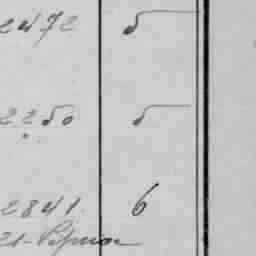 2472 5
2250 5
2841. 6
21-